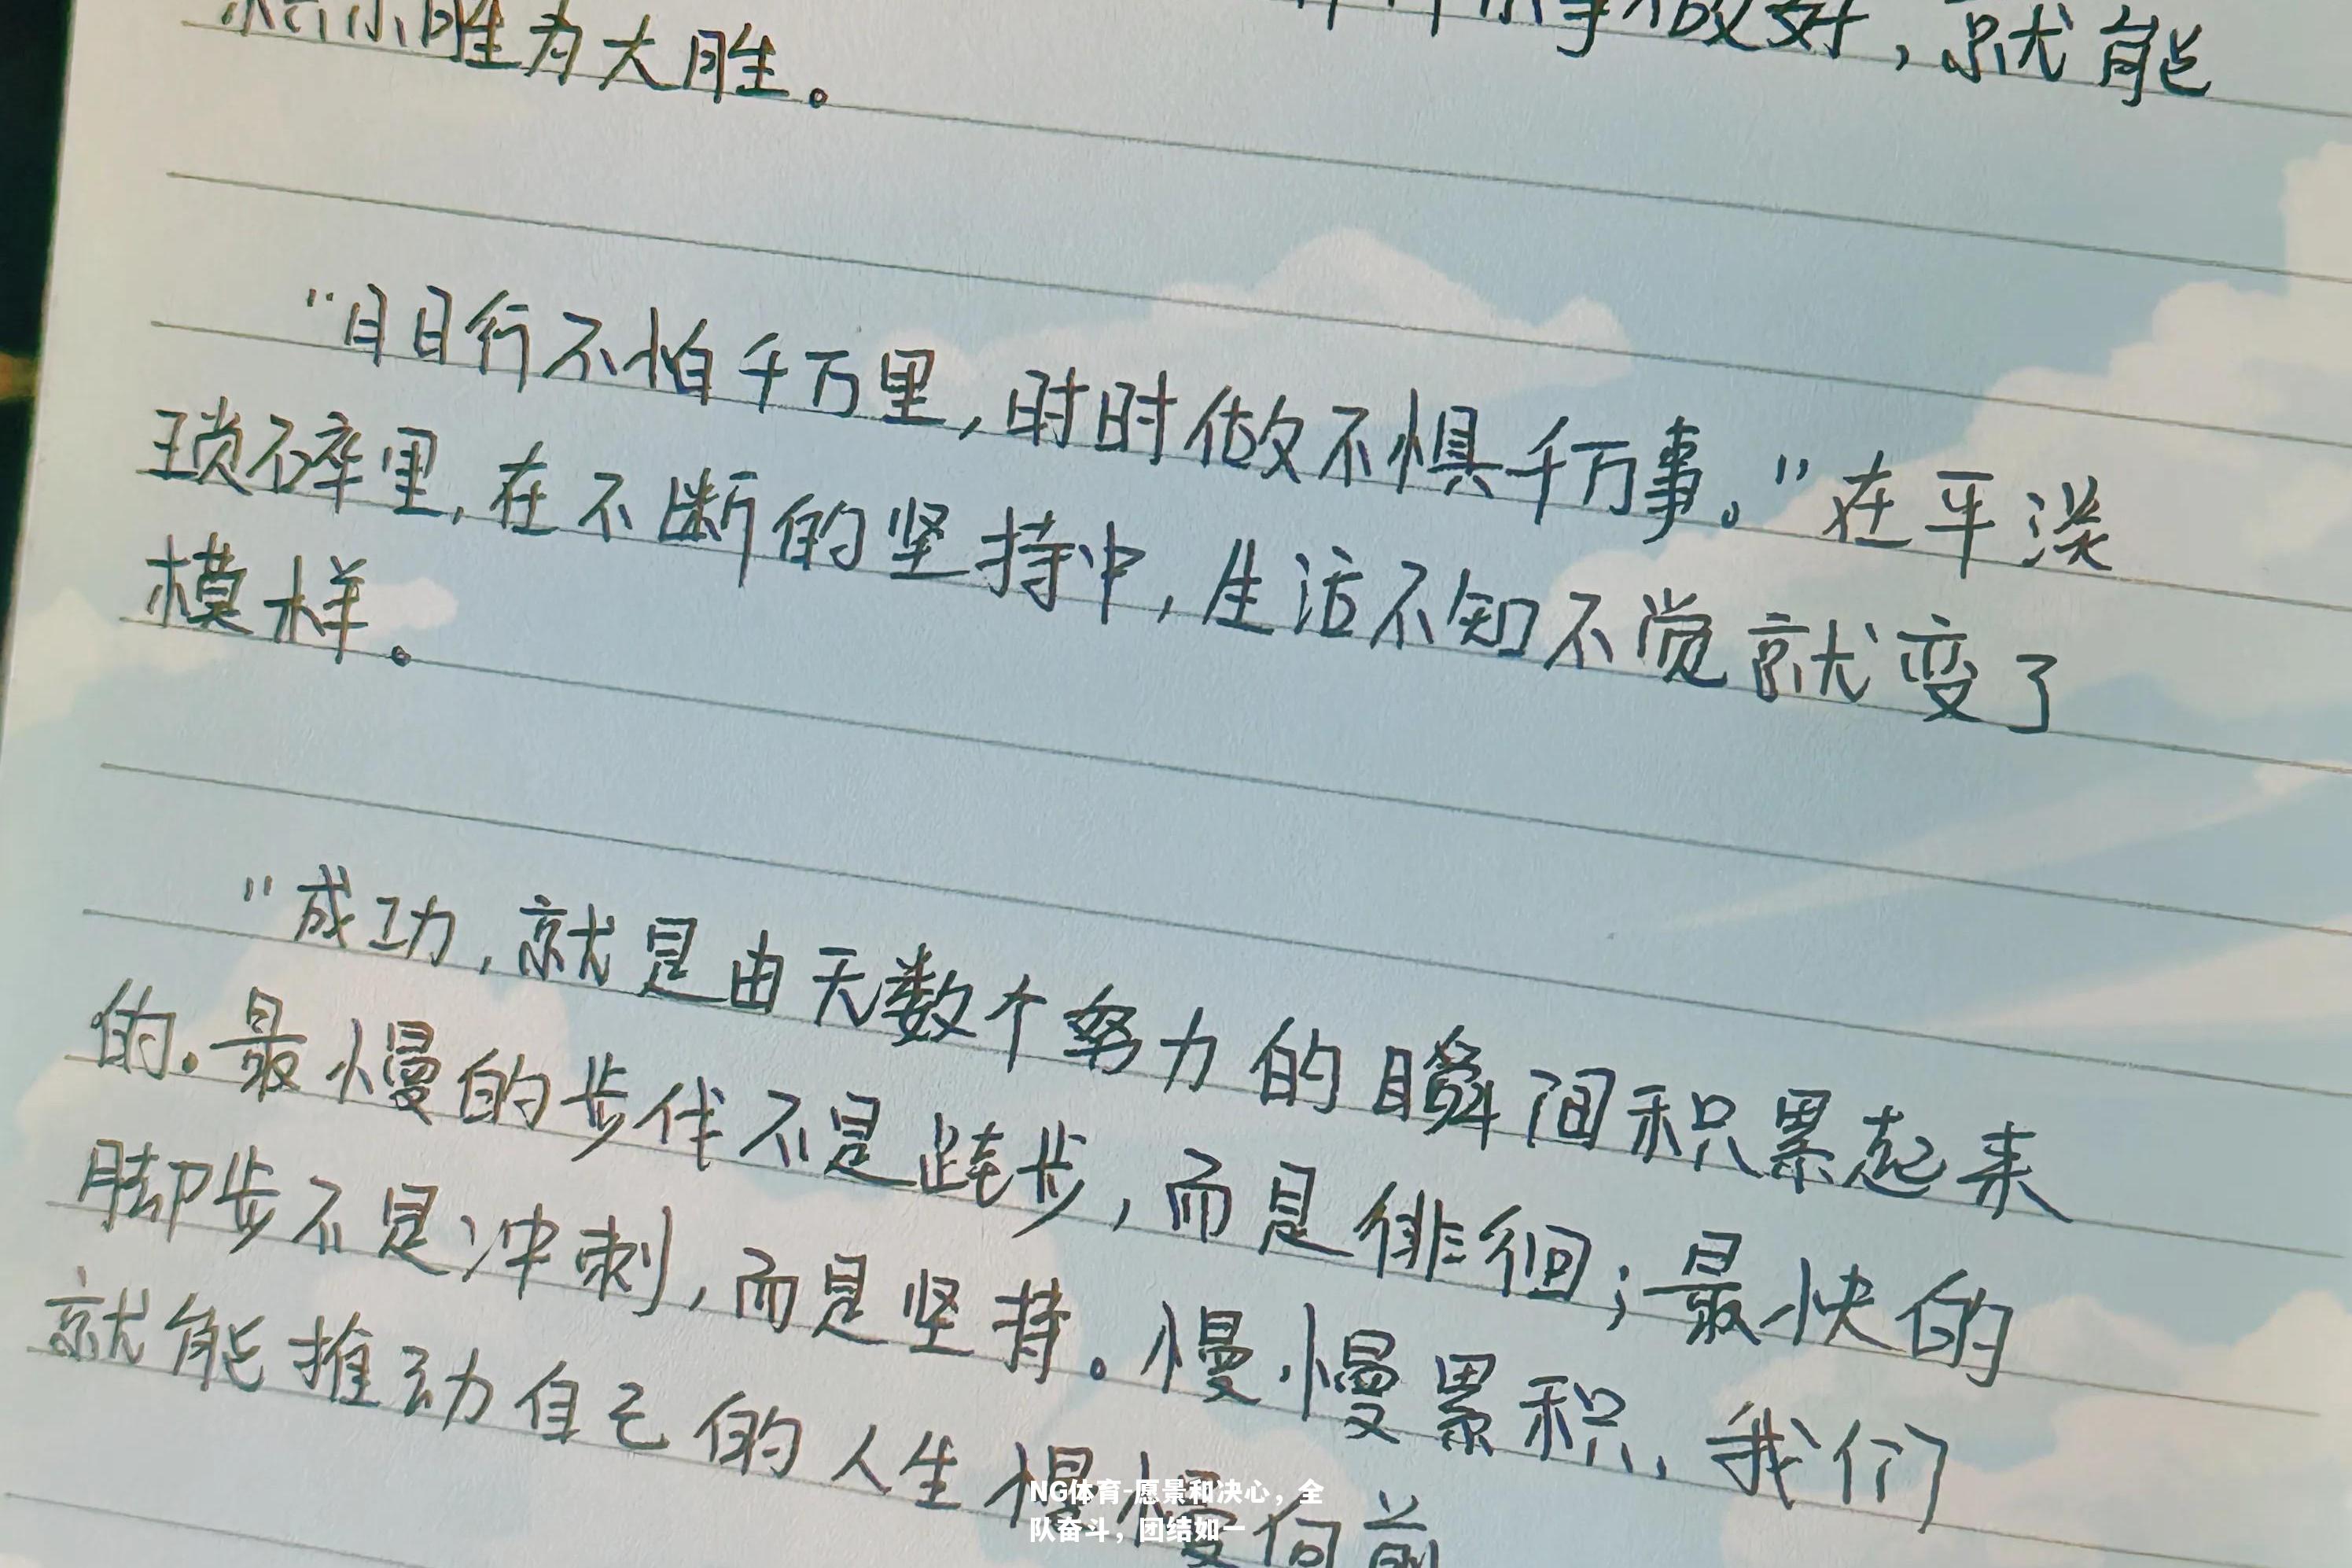 事做好，就能
小胜为大胜。
“日日行不怕千万里，时时做不惧千万事。”在平淡
琐碎里，在不断的坚持中，生活不知不觉就变了
模样。
“成功，就是由无数个努力的瞬间积累起来
的。最慢的步伐不是跬步，而是徘徊；最快的
脚步不是冲刺，而是坚持。慢慢累积，我们
就能推动自己的人生慢慢向前
NG体育-愿景和决心，全
队奋斗，团结如一